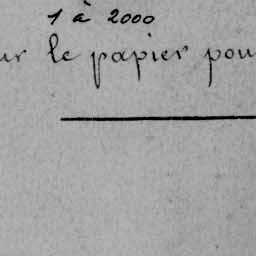 1 à 2000
ur le papier pou